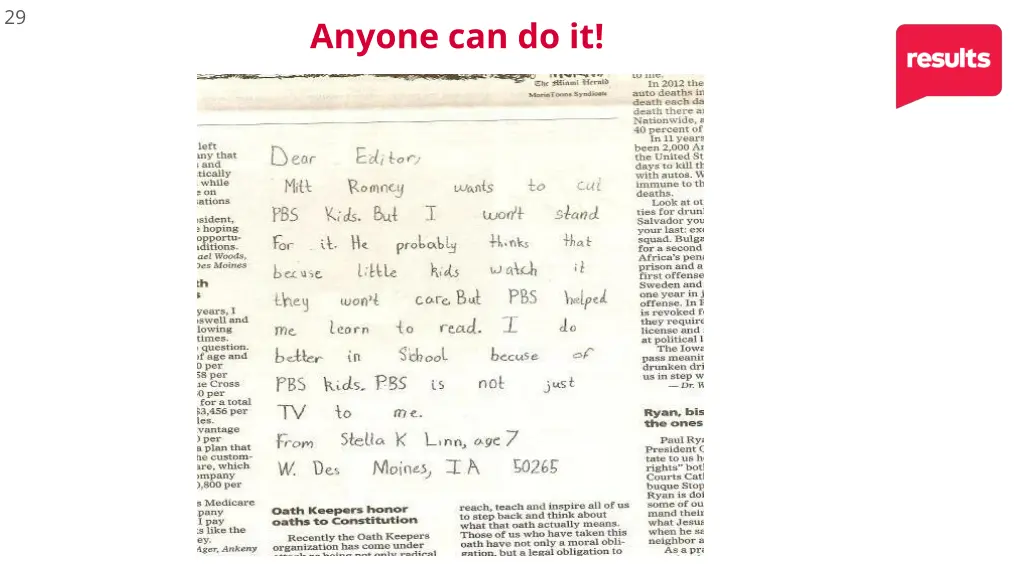 29
Anyone can do it!
results
The Miami Herald
MarioToons Syndicate
Dear Editor,
Mitt Romney wants to cut
PBS Kids. But I won't stand
For it. He probably thinks that
becuse little kids watch it
they won't care. But PBS helped
me learn to read. I do
better in School becuse of
PBS kids. PBS is not just
TV to me.
From Stella K Linn, age 7
W. Des Moines, IA 50265
Oath Keepers honor
oaths to Constitution
Recently the Oath Keepers
organization has come under
reach, teach and inspire all of us
to step back and think about
what that oath actually means.
Those of us who have taken this
oath have not only a moral obli-
gation, but a legal obligation to
left
any that
and
tically
while
e on
sations
sident,
e hoping
opportu-
aditions.
ael Woods,
Des Moines
th
s
years, I
swell and
lowing
times.
question.
of age and
0 per
58 per
ue Cross
60 per
for a total
$3,456 per
les.
vantage
0 per
a plan that
he custom-
are, which
ompany
0,800 per
s Medicare
pany
I pay
s like the
ey.
Ager, Ankeny
to me.
In 2012 the
auto deaths in
death each da
death there a
Nationwide, a
40 percent of
In 11 years
been 2,000 A
the United St
days to kill th
with autos. W
immune to th
deaths.
Look at ot
ties for drun
Salvador you
your last: exe
squad. Bulga
for a second
Africa's pena
prison and a
first offense
Sweden and
one year in j
offense. In
is revoked f
they require
license and
at political l
The Iowa
pass meanin
drunken dri
us in step w
— Dr. W
Ryan, bis
the ones
Paul Rya
President O
tate to us h
rights" both
Courts Cath
buque Stop
Ryan is doi
some of ou
mand their
what Jesus
when he sa
neighbor a
As a pra